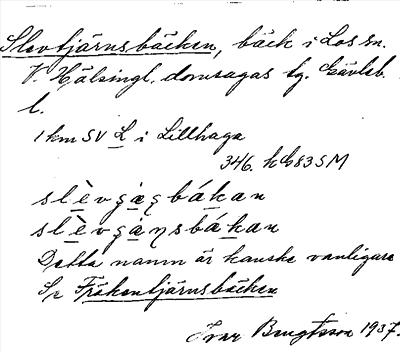 Slevtjärnsbäcken, bäck i Los sn.
V. Hälsingl. domsagas tg. Gävleb.
l.
1 km SV L i Lillhaga
346. kb 83 SM
slèvgąbákan
slèvgąnsbákan
Detta namn är kanske vanligare
Se Fräkentjärnsbäcken
Ivar Bengtsson 1937.